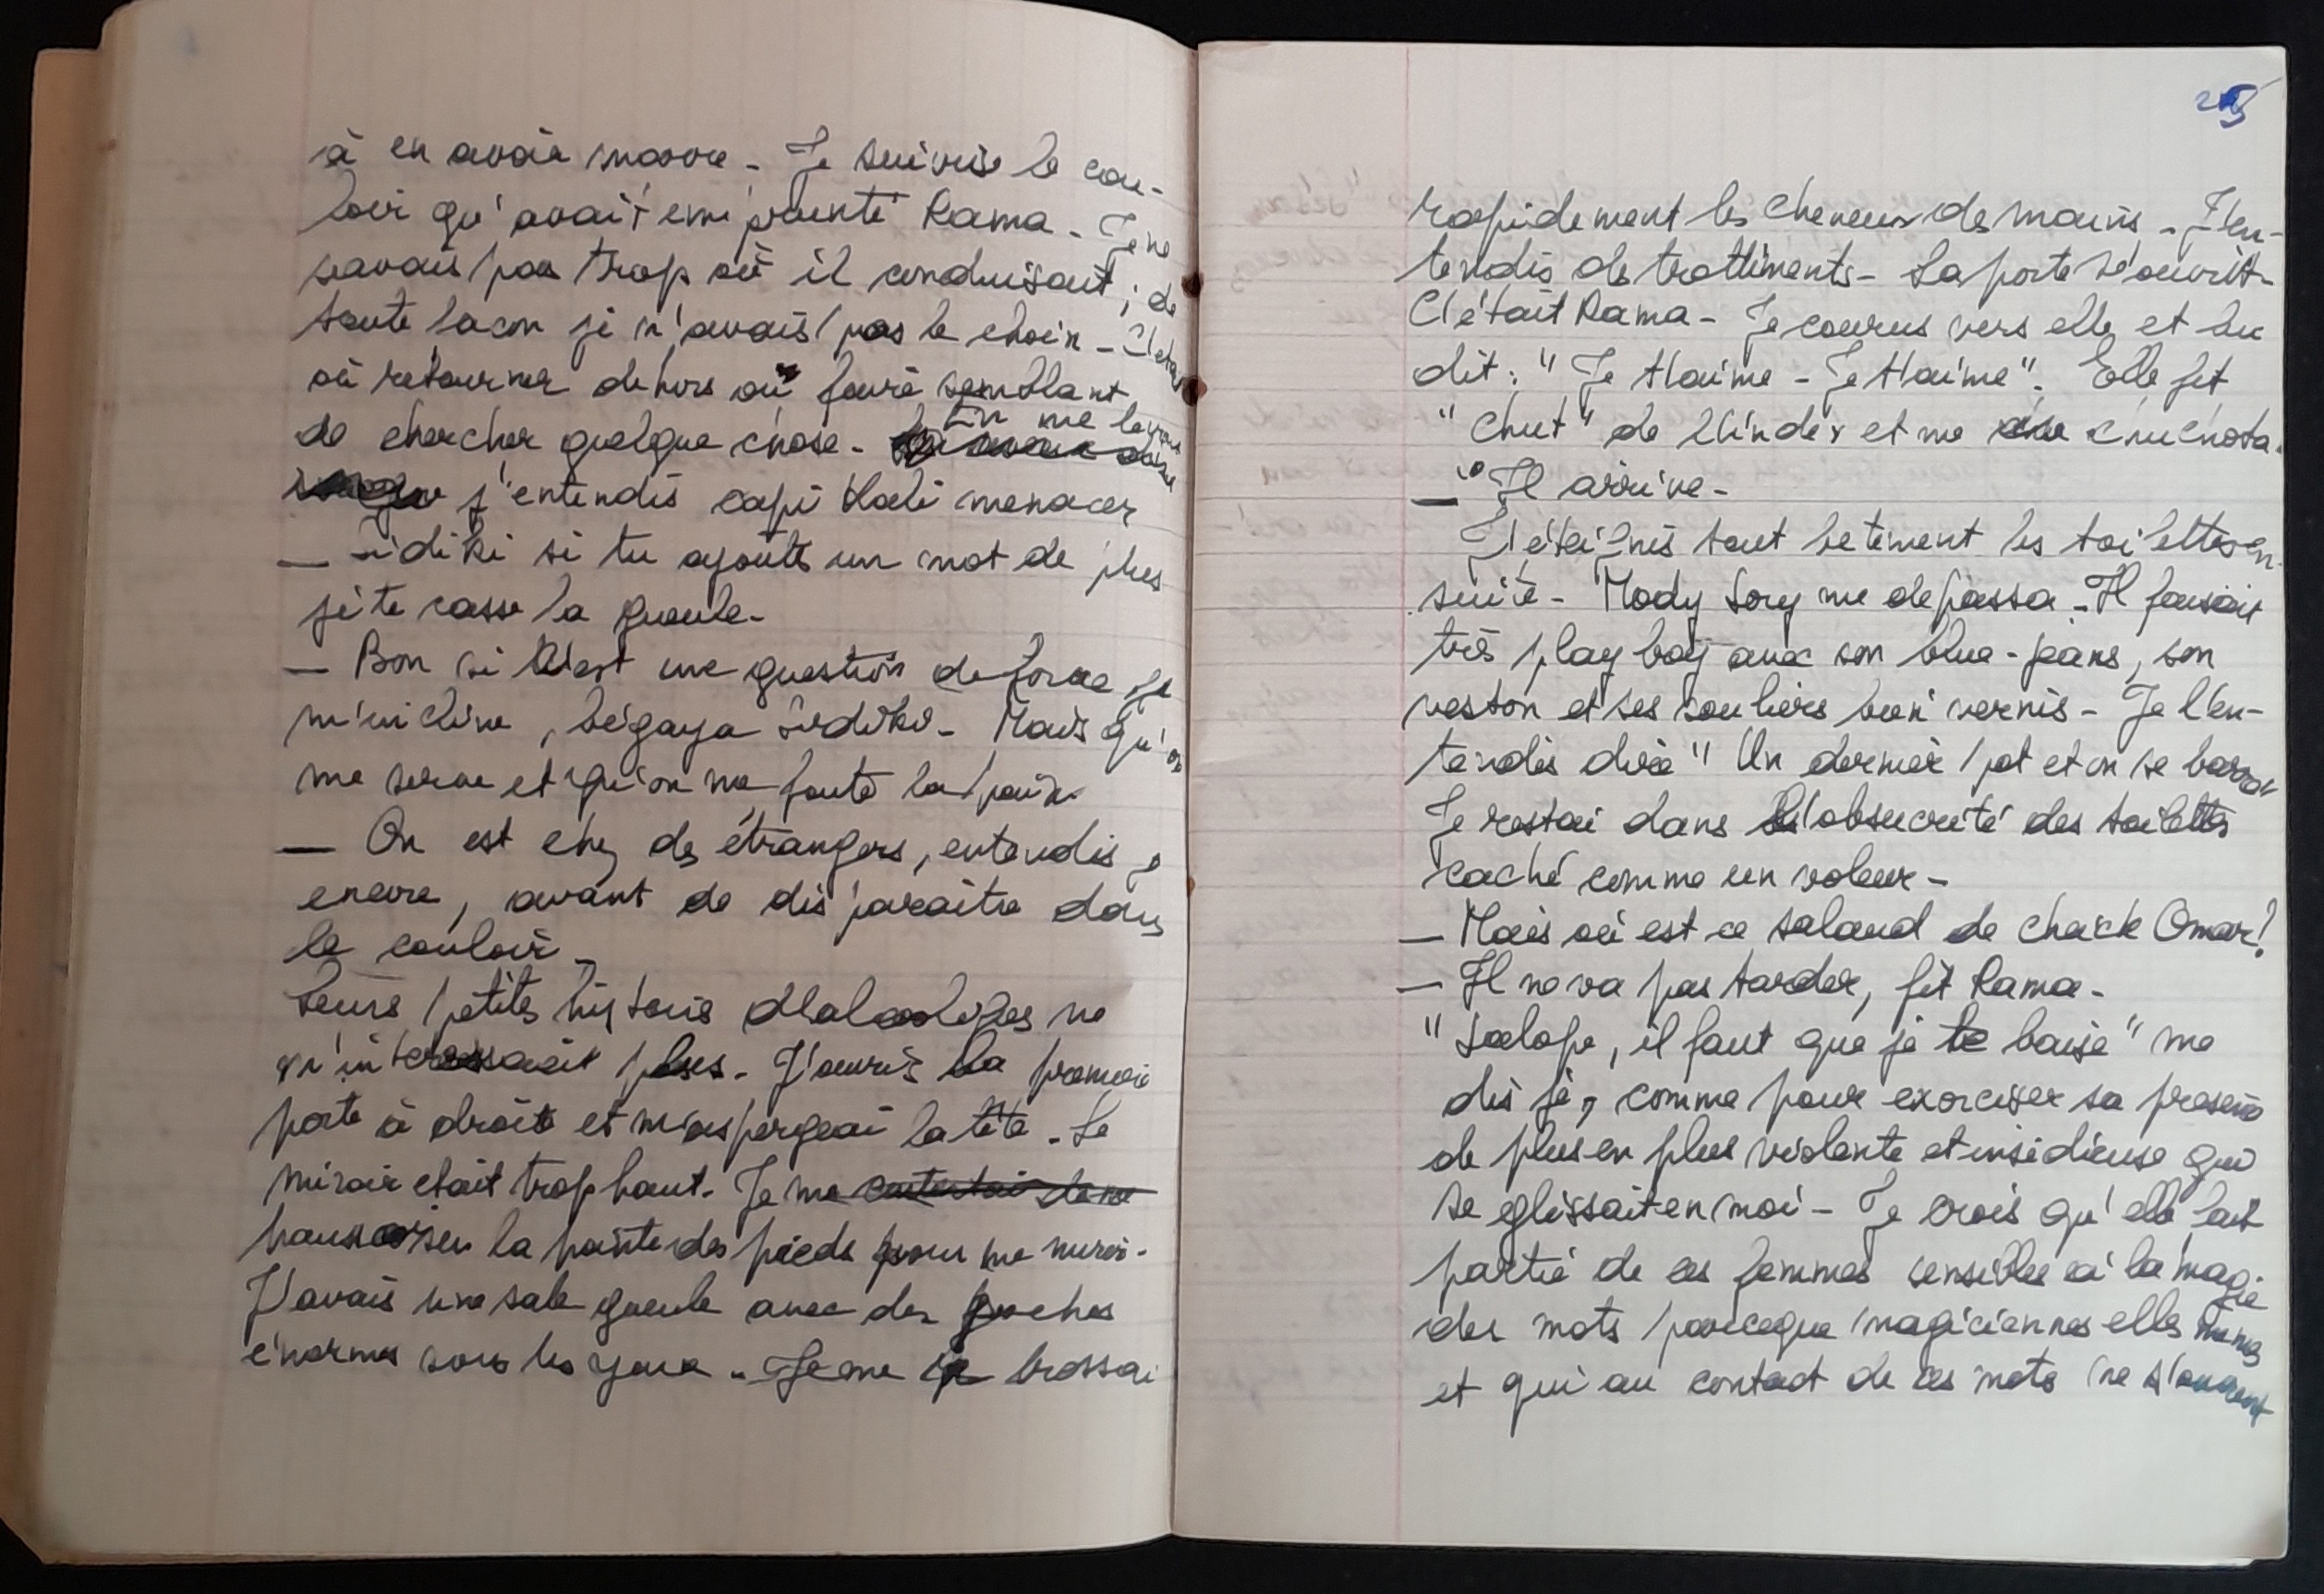 à en avoir marre - Je suivis le cou-
loir qu'avait emprunté Rama - Je ne
savais pas trop où il conduisait ; de
toute facon je n'avais pas le choix - C'était
où retourner dehors ou faire semblant
de chercher quelque chose - En me levant
j'entendis capi Kali menacer
— Sidiki si tu ajoutes un mot de plus
je te casse la gueule -
— Bon si c'est une question de force je
m'incline, bégaya Sidiki - Mais qu'on
me serve et qu'on me foute la paix -
— On est chez des étrangers, entendis je
encore, avant de disparaître dans
le couloir -
Leurs petites histoires d'alcooliques ne
m'interessait plus - J'ouvris la premiere
porte à droite et m'aspergeai la tête - Le
miroir etait trop haut - Je me contentai de me
haussai sur la pointe des pieds pour me mirer -
J'avais une sale gueule avec des poches
énormes sous les yeux - Je me brossai
rapidement les cheveux des mains - J'en-
tendis des trottiments - La porte s'ouvrit -
C'était Rama - Je courus vers elle et lui
dit : " Je t'aime - Je t'aime ". Elle fit
" chut " de l'index et me chuchota.
— " Il arrive -
J'éteignis tout betement les toilettes en-
suite - Mody Sory me depassa - Il faisait
très play boy avec son blue-jeans, son
veston et ses souliers bien vernis - Je l'en-
tendis dire " Un dernier pot et on se barre "
Je restai dans l'obscurité des toilettes
caché comme un voleur -
— Mais où est ce salaud de Cheick Omar ?
— Il ne va pas tarder, fit Rama -
" Salope, il faut que je te baise " me
dis je, comme pour exorciser sa presence
de plus en plus violente et insidieuse qui
se glissait en moi - Je crois qu'elle fait
partie de ces femmes sensibles à la magie
des mots parceque magiciennes elles memes
et qui au contact de ces mots ne s'ouvrent